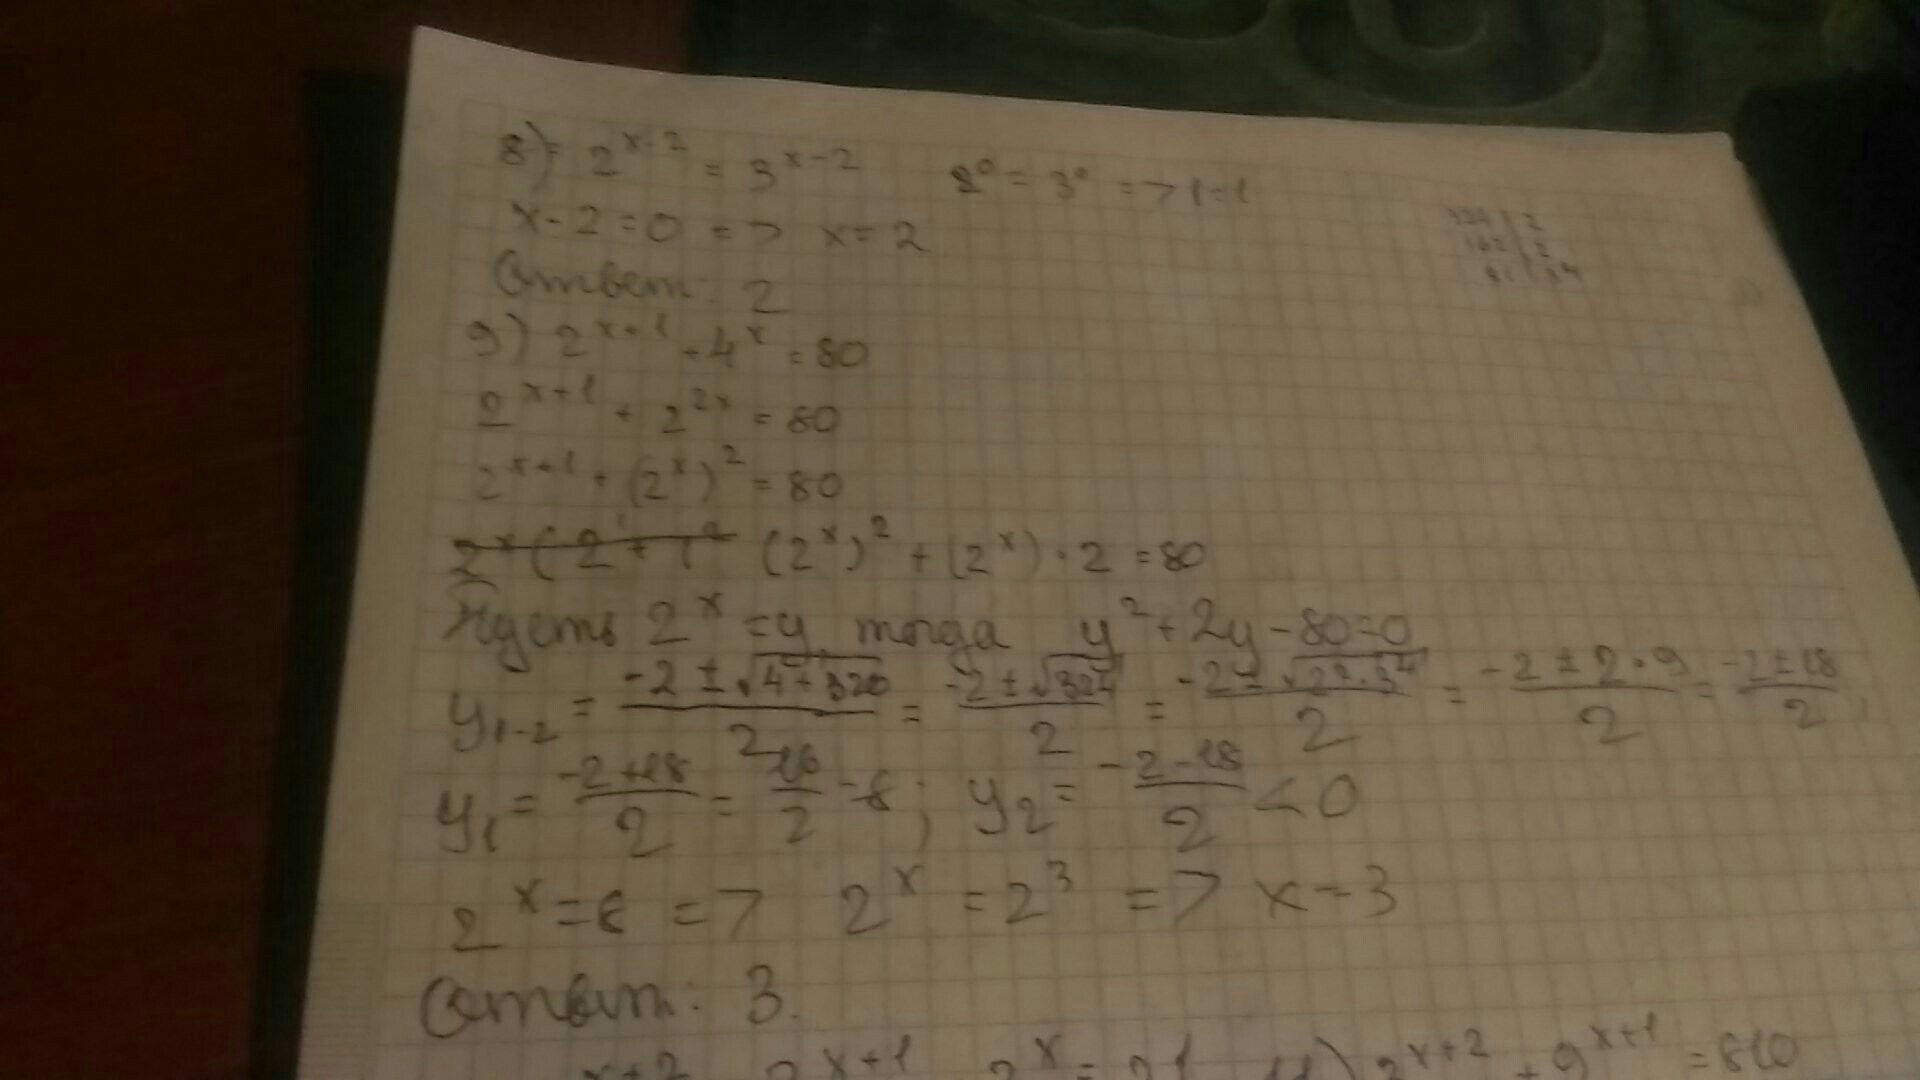 8) 2^{x-2} = 3^{x-2}   2^0 = 3^0 => 1=1
x-2=0 => x=2
Ответ: 2
324 | 2
162 | 2
81 | 3^4
9) 2^{x+1} + 4^x = 80
2^{x+1} + 2^{2x} = 80
2^{x+1} + (2^x)^2 = 80
(2^x)^2 + (2^x) · 2 = 80
Пусть 2^x = y, тогда y^2 + 2y - 80 = 0
y_{1-2} = \frac{-2 ± √(4+320)}{2} = \frac{-2 ± √324}{2} = \frac{-2 ± √(2^2·3^4)}{2} = \frac{-2 ± 2·9}{2} = \frac{-2 ± 18}{2};
y_1 = \frac{-2+18}{2} = \frac{16}{2} = 8; y_2 = \frac{-2-18}{2} < 0
2^x = 8 => 2^x = 2^3 => x = 3
Ответ: 3.
11) 3^{x+2} + 9^{x+1} = 810